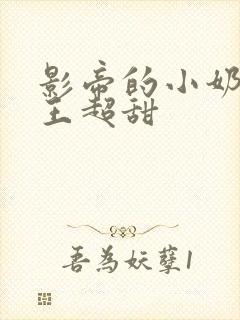 影帝的小奶
王超甜
吾为妖孽1